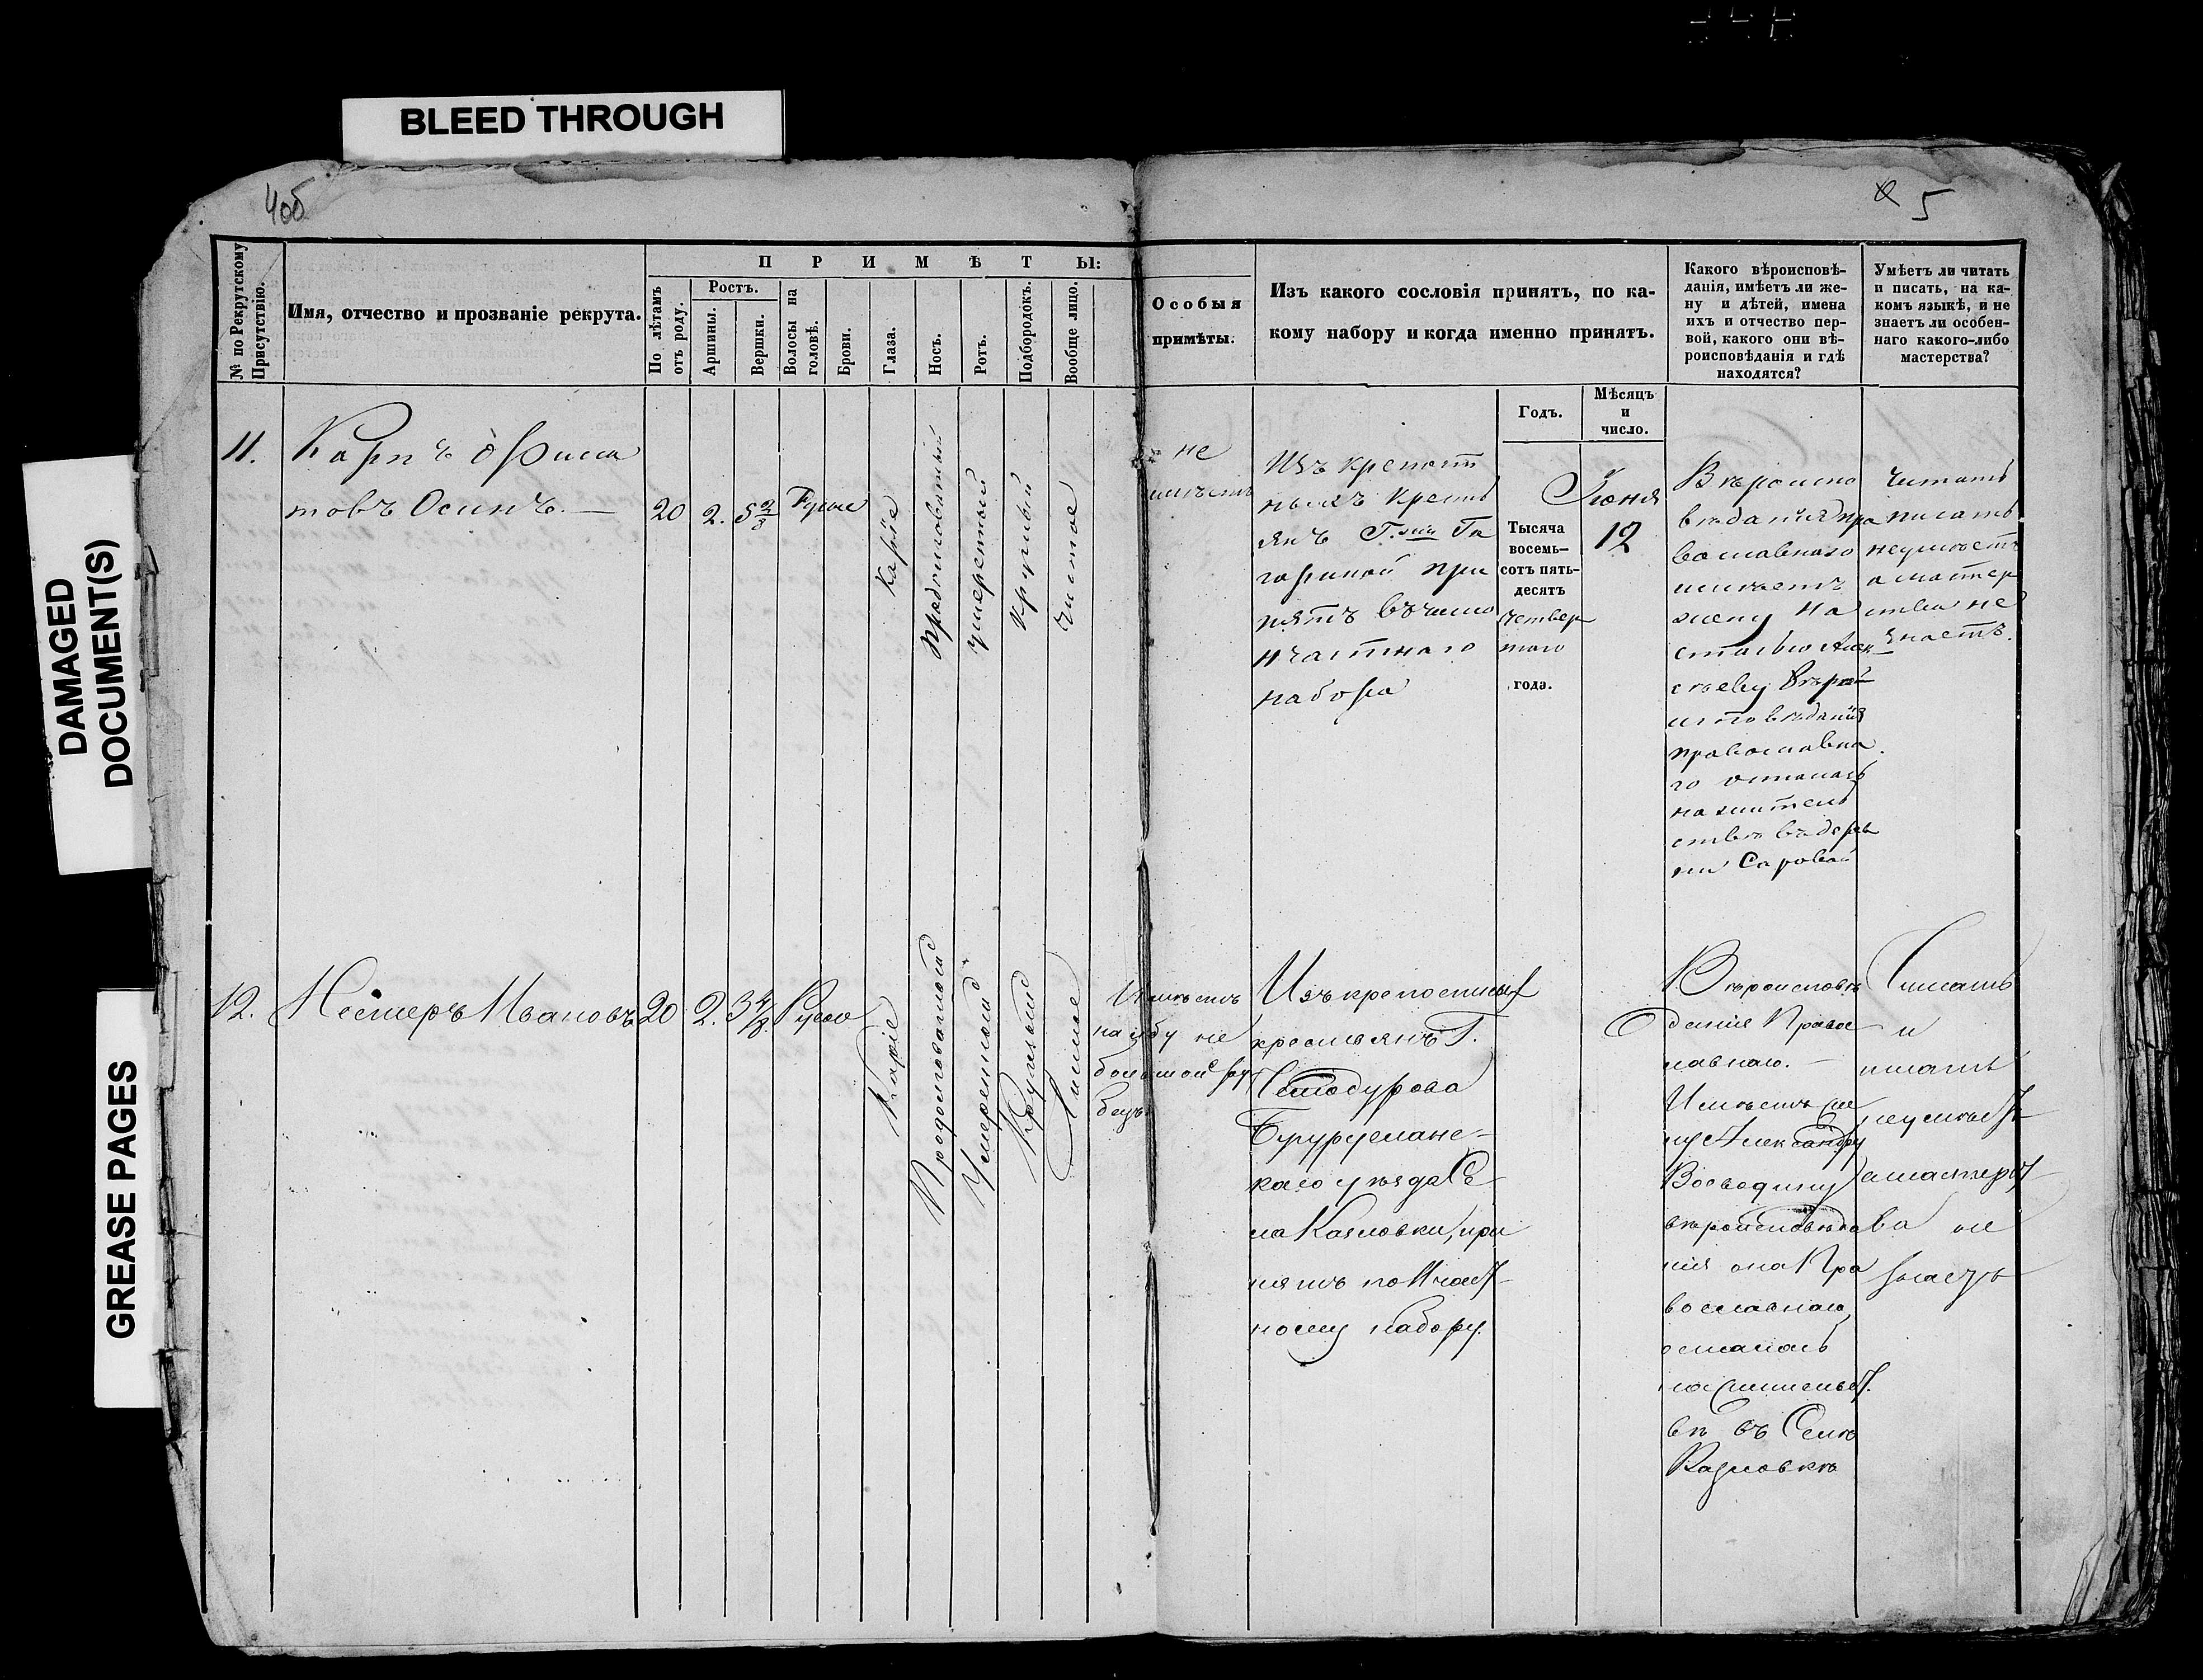 BLEED THROUGH
DAMAGED
DOCUMENT(S)
GREASE PAGES
4об
5
№ по Рекрутскому
Присутствію.
Имя, отчество и прозваніе рекрута.
ПРИМѢТЫ:
По лѣтамъ
отъ роду.
Ростъ.
Аршины.
Вершки.
Волосы на
головѣ.
Брови.
Глаза.
Носъ.
Ротъ.
Подбородокъ.
Вообще лицо.
Особыя
примѣты.
Изъ какого сословія принятъ, по ка-
кому набору и когда именно принятъ.
Годъ.
Мѣсяцъ
и
число.
Какого вѣроисповѣ-
данія, имѣетъ ли же-
ну и дѣтей, имена
ихъ и отчество пер-
вой, какого они вѣ-
роисповѣданія и гдѣ
находятся?
Умѣетъ ли читать
и писать, на ка-
комъ языкѣ, и не
знаетъ ли особен-
наго какого-либо
мастерства?
11.
Карпъ
товъ Осинъ.
20
2.
5 2/8
Русые
Карiе
продолговатый
умеренный
круглый
чистое
не
имѣетъ
Изъ крепост
ныхъ кресть
янъ Г.жи Га
гариной при
нятъ въ число
частнаго
набора
Тысяча
восемь-
сотъ пять-
десятъ
четвер
таго
года.
Іюня
12
Вѣроиспо
вѣданія пра
вославнаго
имѣетъ
жену На
стасью Алек
сѣеву вѣро
исповѣданія
православна
го осталась
на житель
ствѣ въ дерев
ни Саровай
читать
писать
неумѣетъ
а мастер
ства не
знаетъ.
12.
Нестеръ Ивановъ
20
2.
3 4/8
Русые
Карiе
Продолговатой
Умеренной
Круглой
Чистое
Имѣетъ
на лбу не
большой ру
бецъ
Изъ крепостныхъ
крестьянъ Г.
Стободурова
Бугуруслане-
каго уѣзда Се-
ла Казловки, при
нятъ по част
ному набору.
Вѣроисповѣ
данiя Правос
лавнаго.
Имѣетъ же
ну Александру
Воеводину
вѣроисповѣда
нія она Пра
вославнаго,
осталась
на жительст
вѣ въ Селѣ
Казловкѣ
Читать
и
писать
неумѣетъ
а мастерст
ва не
знаетъ